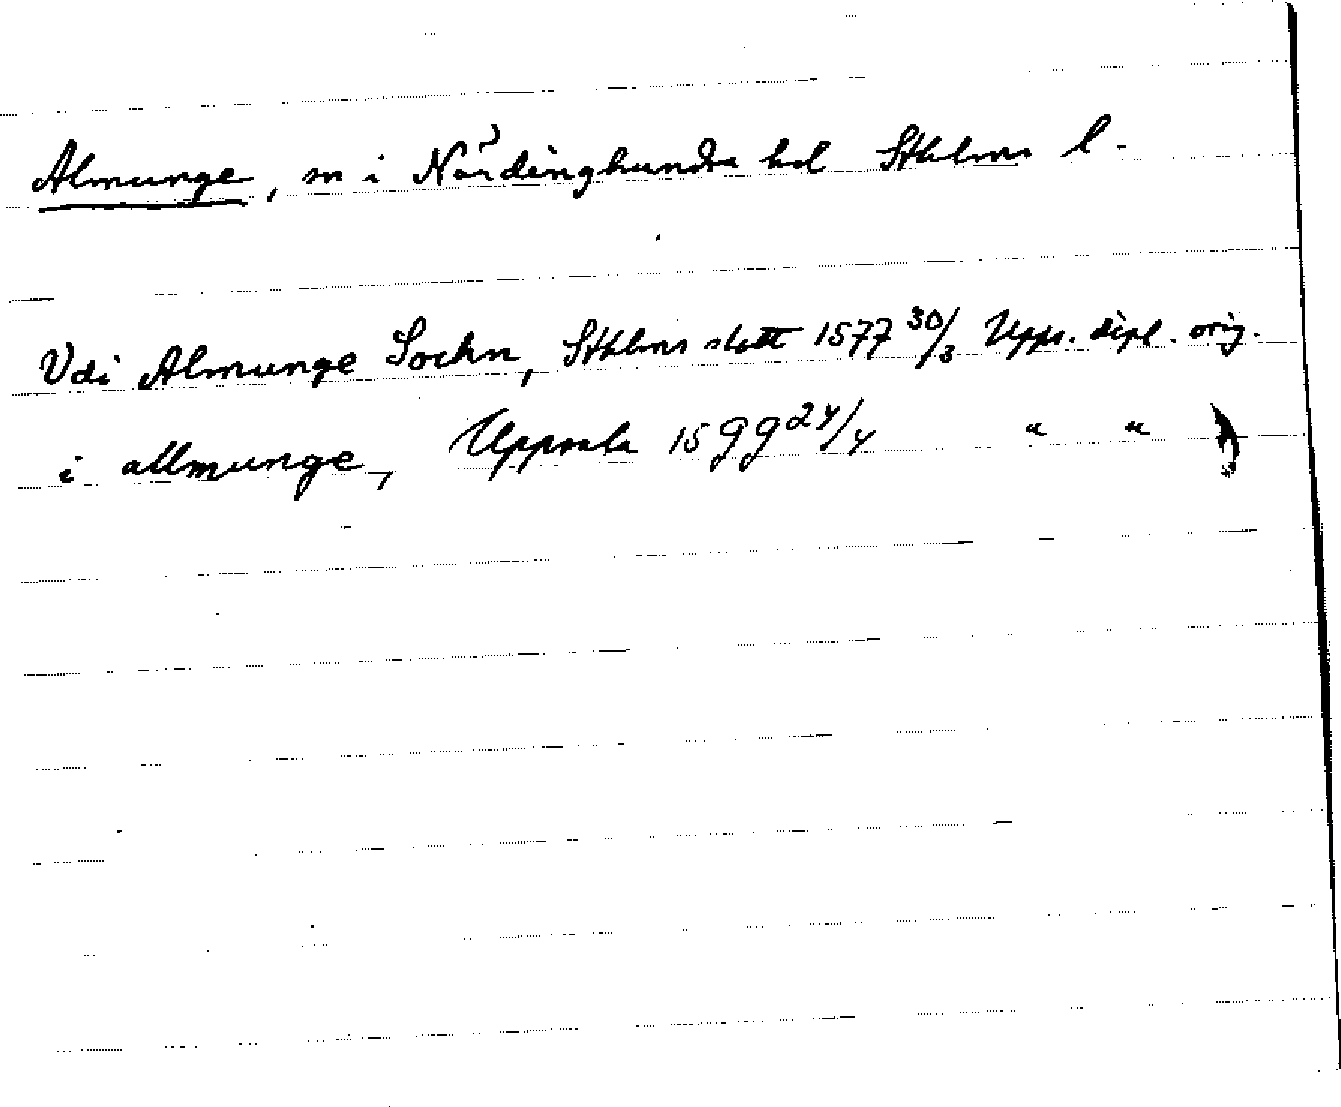 Almunge, sn i Närdinghundra hd Sthlms l.
Vdi Almunge Sochn, Sthlms slott 1577 30/3 Upps. dipl. orig.
i allmunge, Uppsala 1599 24/4 " "